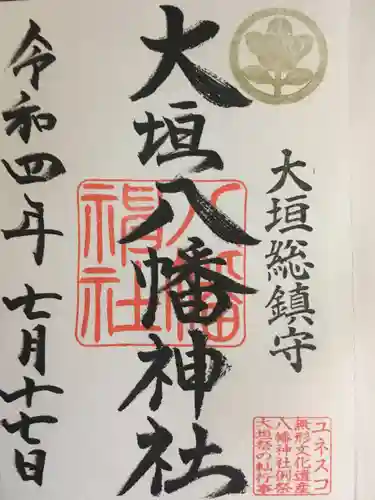 大垣総鎮守
大垣八幡神社
令和四年七月十七日
八幡
神社
ユネスコ
無形文化遺産
八幡神社例祭
大垣祭の軕行事